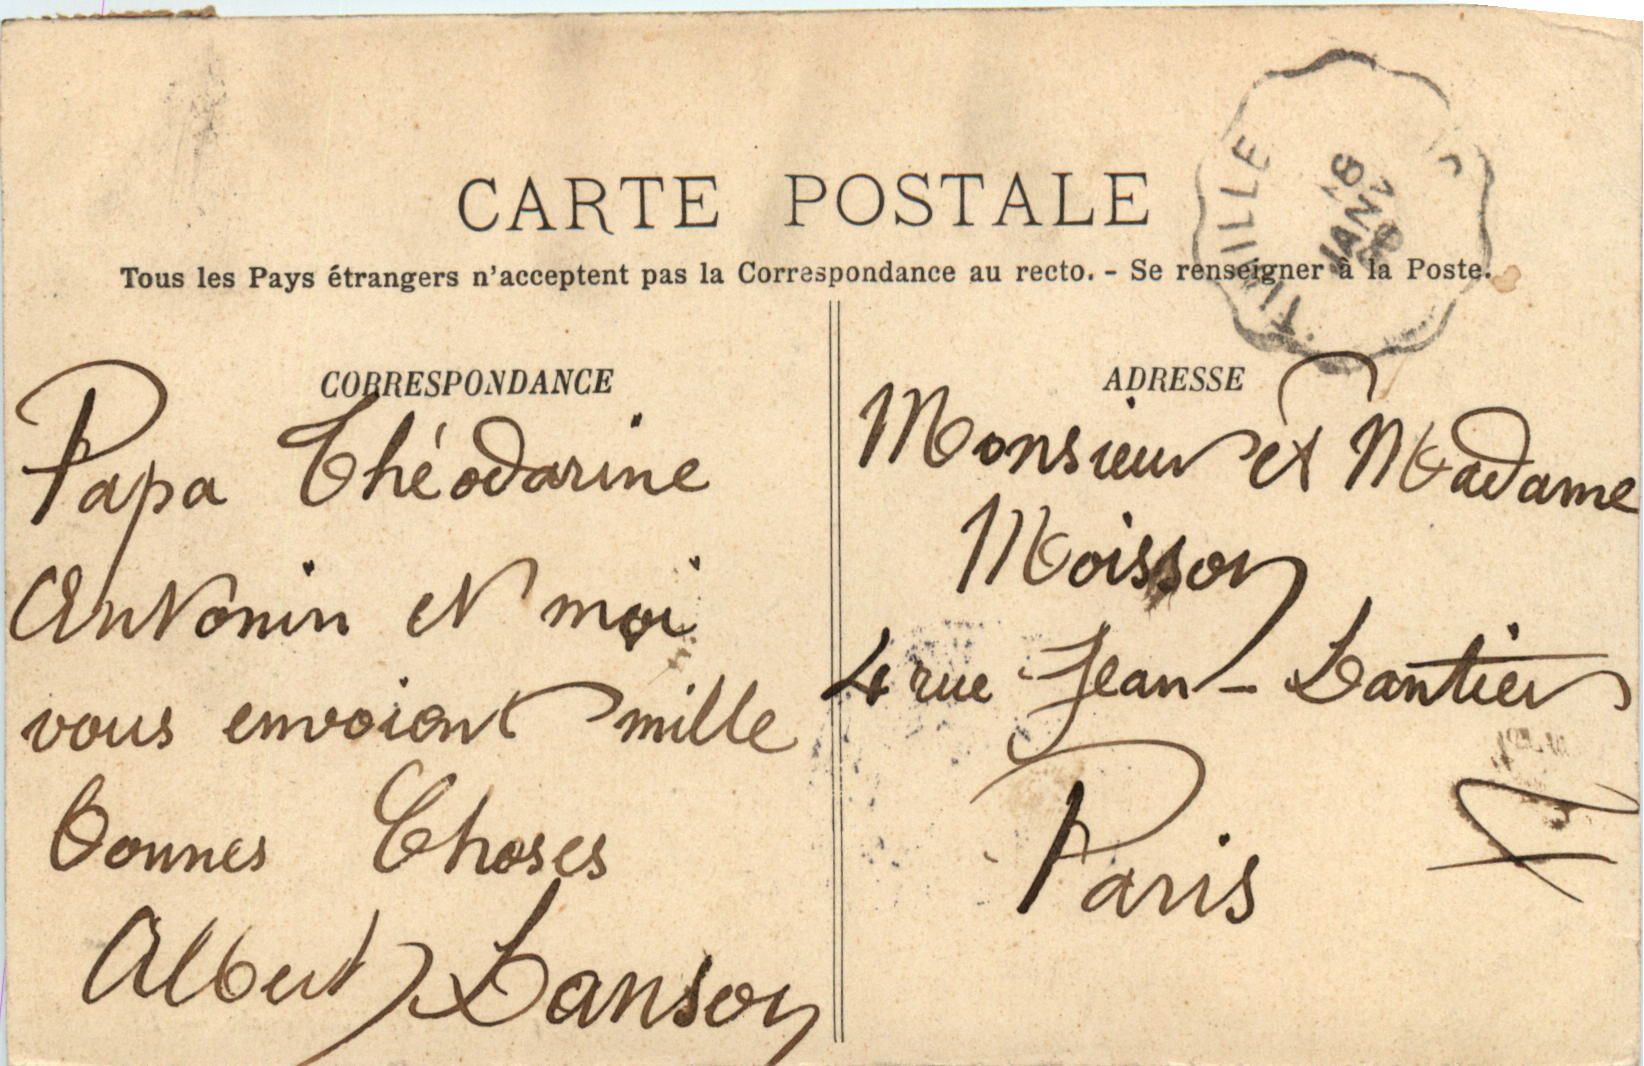 CARTE POSTALE
Tous les Pays étrangers n'acceptent pas la Correspondance au recto. - Se renseigner à la Poste.
CORRESPONDANCE
Papa Théodarine
Antonin et moi
vous envoient mille
bonnes choses
Albert Lanson
ADRESSE
Monsieur et Madame
Moisson
4 rue Jean-Lantier
Paris